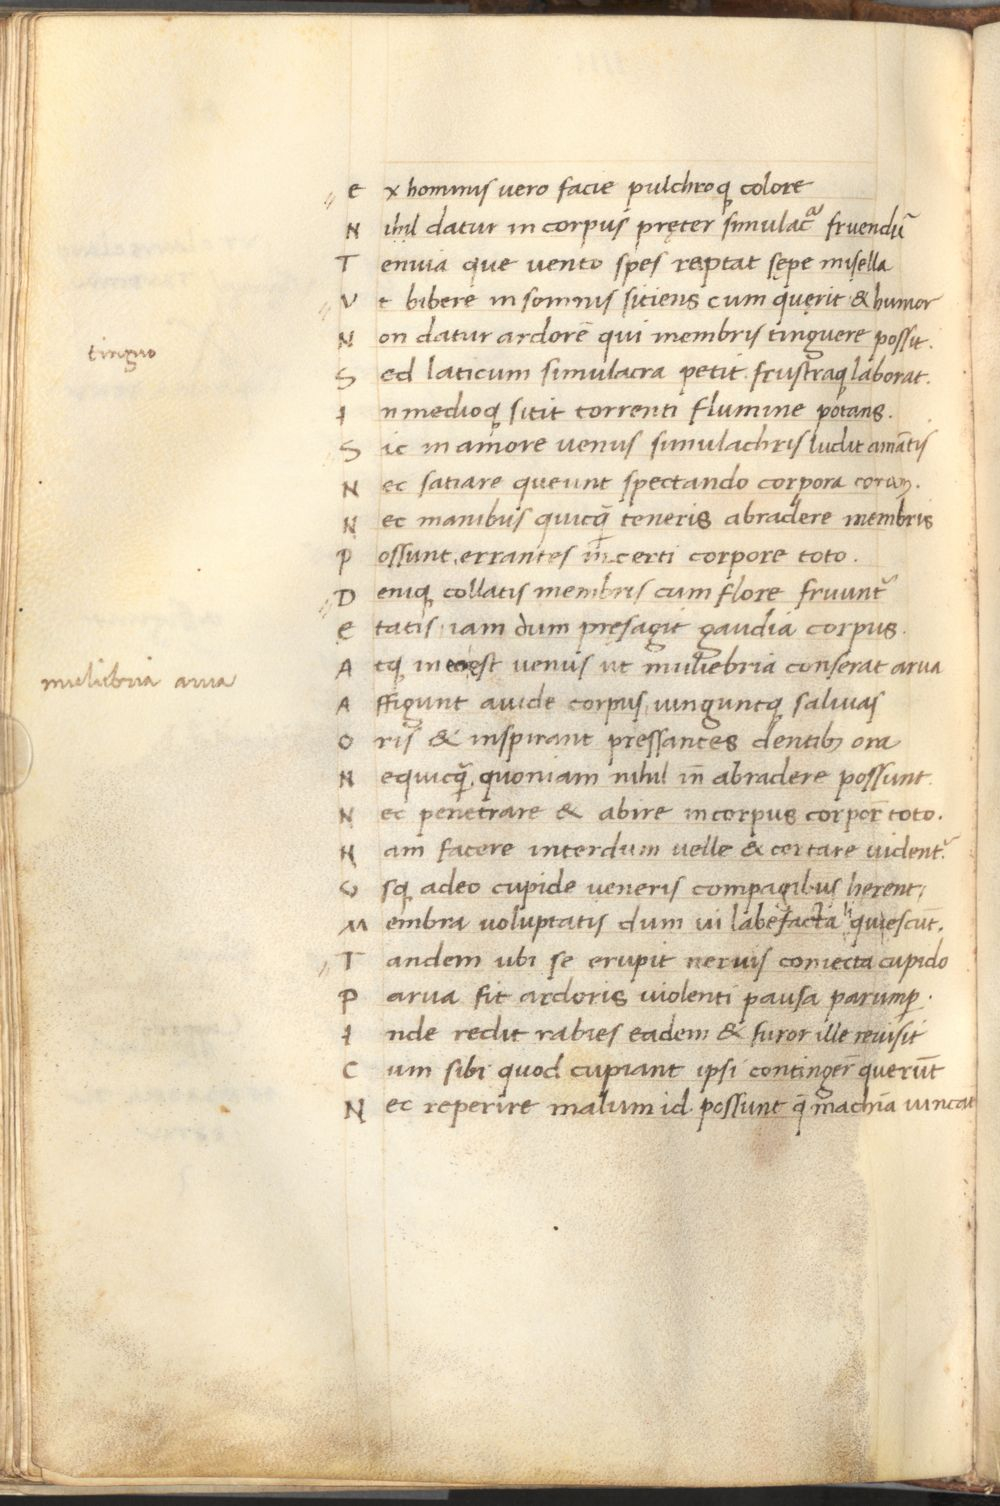 E x hominis uero facie pulchroq; colore
N ihil datur in corpus pręter simulacra fruendū
T enuia que uento spes raptat sępe misella
V t bibere in somnis sitiens cum quęrit & humor
N on datur ardorē qui membris tinguere possit.
tinguo
S ed laticum simulacra petit frustraq; laborat.
I n medioq; sitit torrenti flumine potans.
S ic in amore uenus simulachris ludit amātis
N ec satiare queunt spectando corpora coram.
N ec manibus quicq̄ teneris abradere membris
P ossunt, errantes incerti corpore toto.
D eniq; collatis membris cum flore fruunt᷑
E tatis, iam dum pręsagit gaudia corpus.
A tq; in est uenus ut muliebria conserat arua
muliebria arua
A ffigunt auide corpus, iunguntq; saliuas
O ris & inspirant pressantes dentib; ora
N equicq̄, quoniam nihil in̄ abradere possunt.
N ec penetrare & abire in corpus corpor̄ toto.
N am facere interdum uelle & certare uident᷑
V sq; adeo cupide ueneris compagibus hęrent,
M embra uoluptatis dum ui labefacta liquescūt.
T andem ubi se erupit neruis coniecta cupido
P arua fit ardoris uiolenti pausa parumper.
I nde redit rabies eadem & furor ille reuisit
C um sibi quod cupiant ipsi continger̄ querūt
N ec reperire malum id possunt q̄ machīa uincat